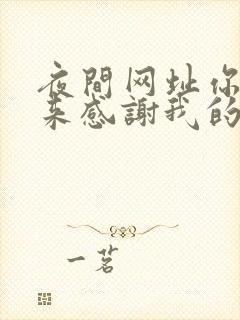 夜間网址你
来感謝我的
一茗